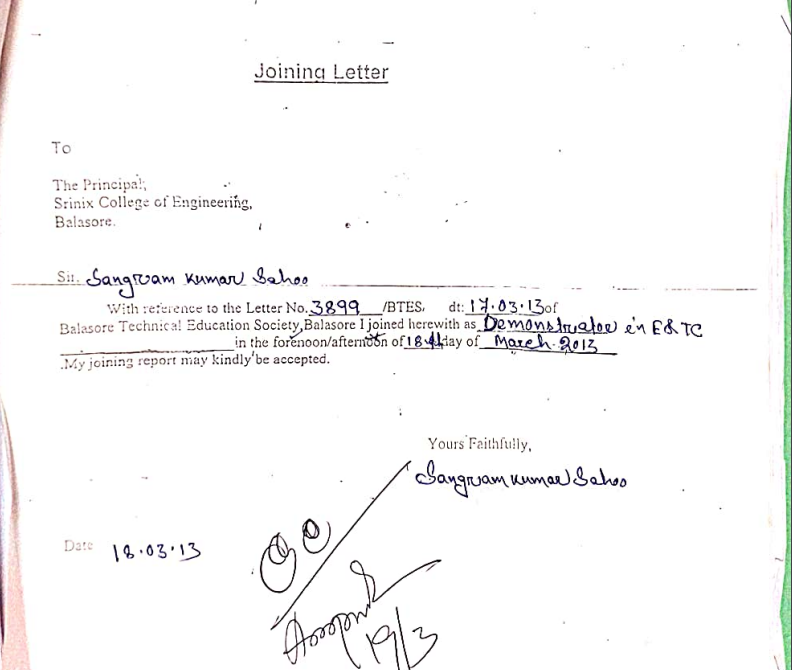 Joining Letter
To
The Principal,
Srinix College of Engineering,
Balasore.
Sir. Sangram Kumar Sahoo
With reference to the Letter No. 3899 /BTES, dt: 17.03.13 of
Balasore Technical Education Society, Balasore I joined herewith as Demonstrator in E&TC
in the forenoon/afternoon of 18th day of March. 2013
.My joining report may kindly be accepted.
Yours Faithfully,
Sangram Kumar Sahoo
Date 18.03.13
19/3